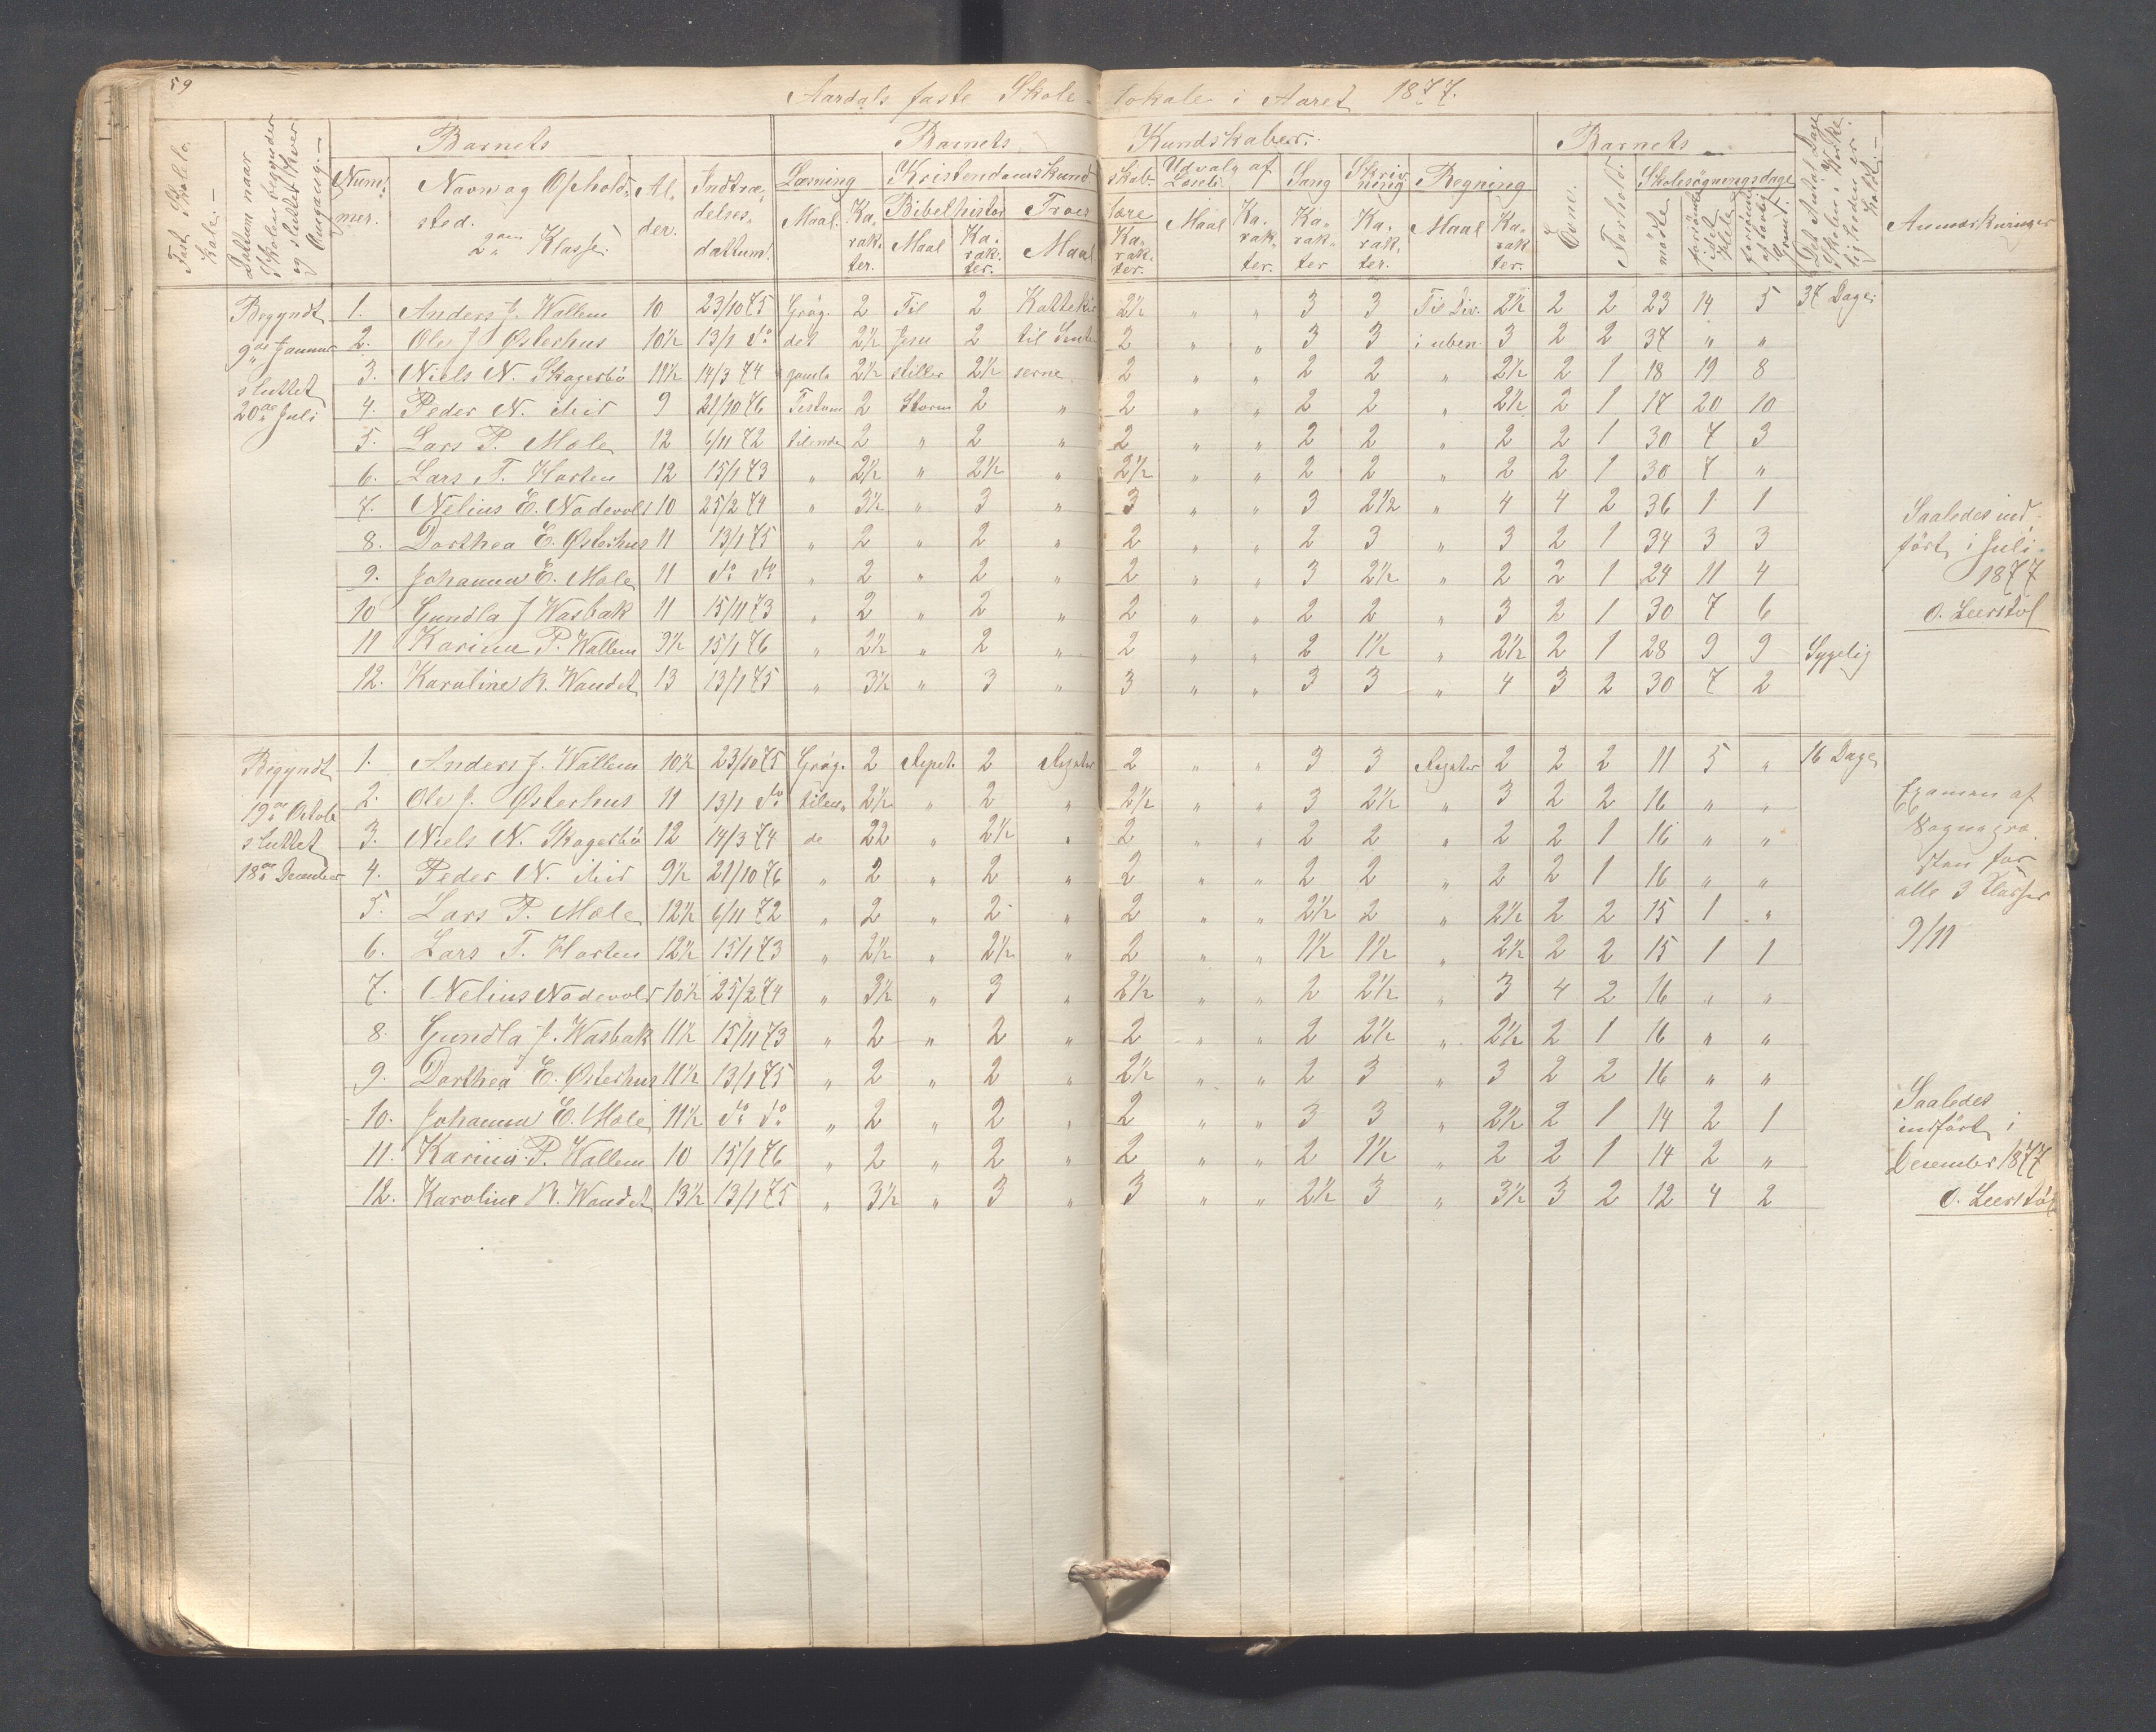 59
Aardals faste Skole-lokale i Aaret 1877.
Fast Skolelo-kale.
Dattum naar Skolen begynder og sluttet hver Omgang.
Barnets
Num-mer.
Navn og Opholds-sted. 2den Klasse.
Al-der.
Indtræ-delses-dattum.
Barnets Kundskaber.
Læsning
Maal. Ka-rak-ter.
Kristendomskund-skab.
Bibelhistor Maal Ka-rak-ter.
Troes Maal lære Ka-rak-ter.
Udvalg af Læseb. Maal Ka-rak-ter.
Sang Ka-rak-ter
Skriv-ning Ka-rak-ter.
Regning Maal Ka-rak-ter.
Barnets
Evne. Forhold.
Skolesøgningsdage
mødte forsømte i det Hele forsømte af lovlig Grund.
Det Antal Dage Skolen i Virke-ligheden er holdt.
Anmærkninger
Begyndt 9de Januar sluttet 20de Juli
1. Anders J. Wallem 10 23/10 75 Gråg. 2 Til 2 Kattekis 2½ " " 3 3 Til Div. 2½ 2 2 23 14 5 37 Dage
2. Ole J. Østerhus 10½ 13/1 do det 2½ Jesu 2 til 2 " " 3 3 i uben. 3 2 2 37 " "
3. Niels N. Skogerbö 11½ 14/3 74 gamle 2½ stiller 2½ serne 2 " " 2 2 " 2½ 2 1 18 19 8
4. Peder N. ibid 9 21/10 76 Testam 2 Storm 2 " 2 " " 2 2 " 2½ 2 1 17 20 10
5. Lars P. Mæle 12 6/11 72 tilende 2 " 2 " 2 " " 2 2 " 2 2 1 30 7 3
6. Lars T. Horten 12 15/1 73 " 2½ " 2½ " 2½ " " 2 2 " 2 2 1 30 7 "
7. Nelius E. Nodevold 10 25/2 74 " 3½ " 3 " 3 " " 3 2½ " 4 4 2 36 1 1
8. Dorthea E. Østerhus 11 13/1 75 " 2 " 2 " 2 " " 2 3 " 3 2 1 34 3 3
9. Johanna E. Mæle 11 do do " 2 " 2 " 2 " " 3 2½ " 2 2 1 24 11 4
10 Gundla J Wasbak 11 15/11 73 " 2 " 2 " 2 " " 2 2 " 3 2 1 30 7 6
11 Karina P. Wallem 9½ 15/1 76 " 2½ " 2 " 2 " " 2 1½ " 2½ 2 1 28 9 9 Sygelig
12. Karoline R. Wandet 13 13/1 75 " 3½ " 3 " 3 " " 3 3 " 4 3 2 30 7 2
Saaledes ind-
ført i Juli
1877
O. Leerstøl
Begyndt 19de Octob sluttet 18de December
1. Anders J. Wallem 10½ 23/10 75 Gråg. 2 Repet. 2 Repeter 2 " " 3 3 Repeter 2 2 2 11 5 " 16 Dage
2. Ole J. Østerhus 11 13/1 do tilen- 2½ " 2 " 2½ " " 3 2½ " 3 2 2 16 " "
3. Niels N. Skogerbö 12 14/3 74 de 22 " 2½ " 2 " " 2 2 " 2 2 1 16 " "
4. Peder N. ibid 9½ 21/10 76 " 2 " 2 " 2 " " 2 2 " 2 2 1 16 " "
5. Lars P. Mæle 12½ 6/11 72 " 2 " 2 " 2 " " 2½ 2 " 2½ 2 2 15 1 "
6. Lars T. Horten 12½ 15/1 73 " 2½ " 2½ " 2 " " 1½ 1½ " 2½ 2 2 15 1 1
7. Nelius Nodevold 10½ 25/2 74 " 3½ " 3 " 2½ " " 2 2½ " 3 4 2 16 " "
8. Gundla J. Wasbak 11½ 15/11 73 " 2 " 2 " 2 " " 2 2½ " 2½ 2 1 16 " "
9. Dorthea E. Østerhus 11½ 13/1 75 " 2 " 2 " 2½ " " 2 3 " 3 2 2 16 " "
10. Johanna E. Mæle 11½ do do " 2 " 2 " 2 " " 3 3 " 2½ 2 1 14 2 1
11. Karina P. Wallem 10 15/1 76 " 2 " 2 " 2 " " 2 1½ " 2 2 1 14 2 "
12. Karoline R. Wandet 13½ 13/1 75 " 3½ " 3 " 3 " " 2½ 3 " 3½ 3 2 12 4 2
Examen af
Sognepræ-
sten for
alle 3 Klasser
9/11
Saaledes
indført i
December 1877
O. Leerstøl